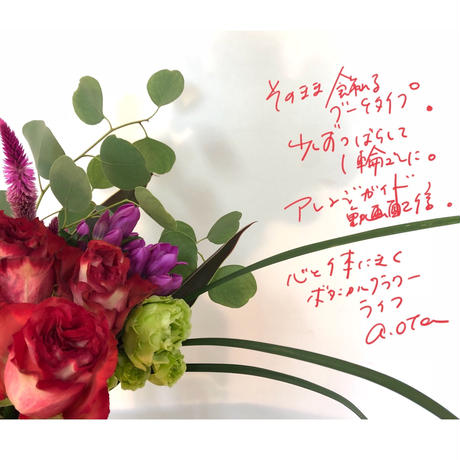 そのまま飾れる
ブーケタイプ。
少しずつばらして
1輪ざしに。
アレンジガイド
動画配信。
心と体にきく
ボタニカルフラワー
ライフ
a.OTa